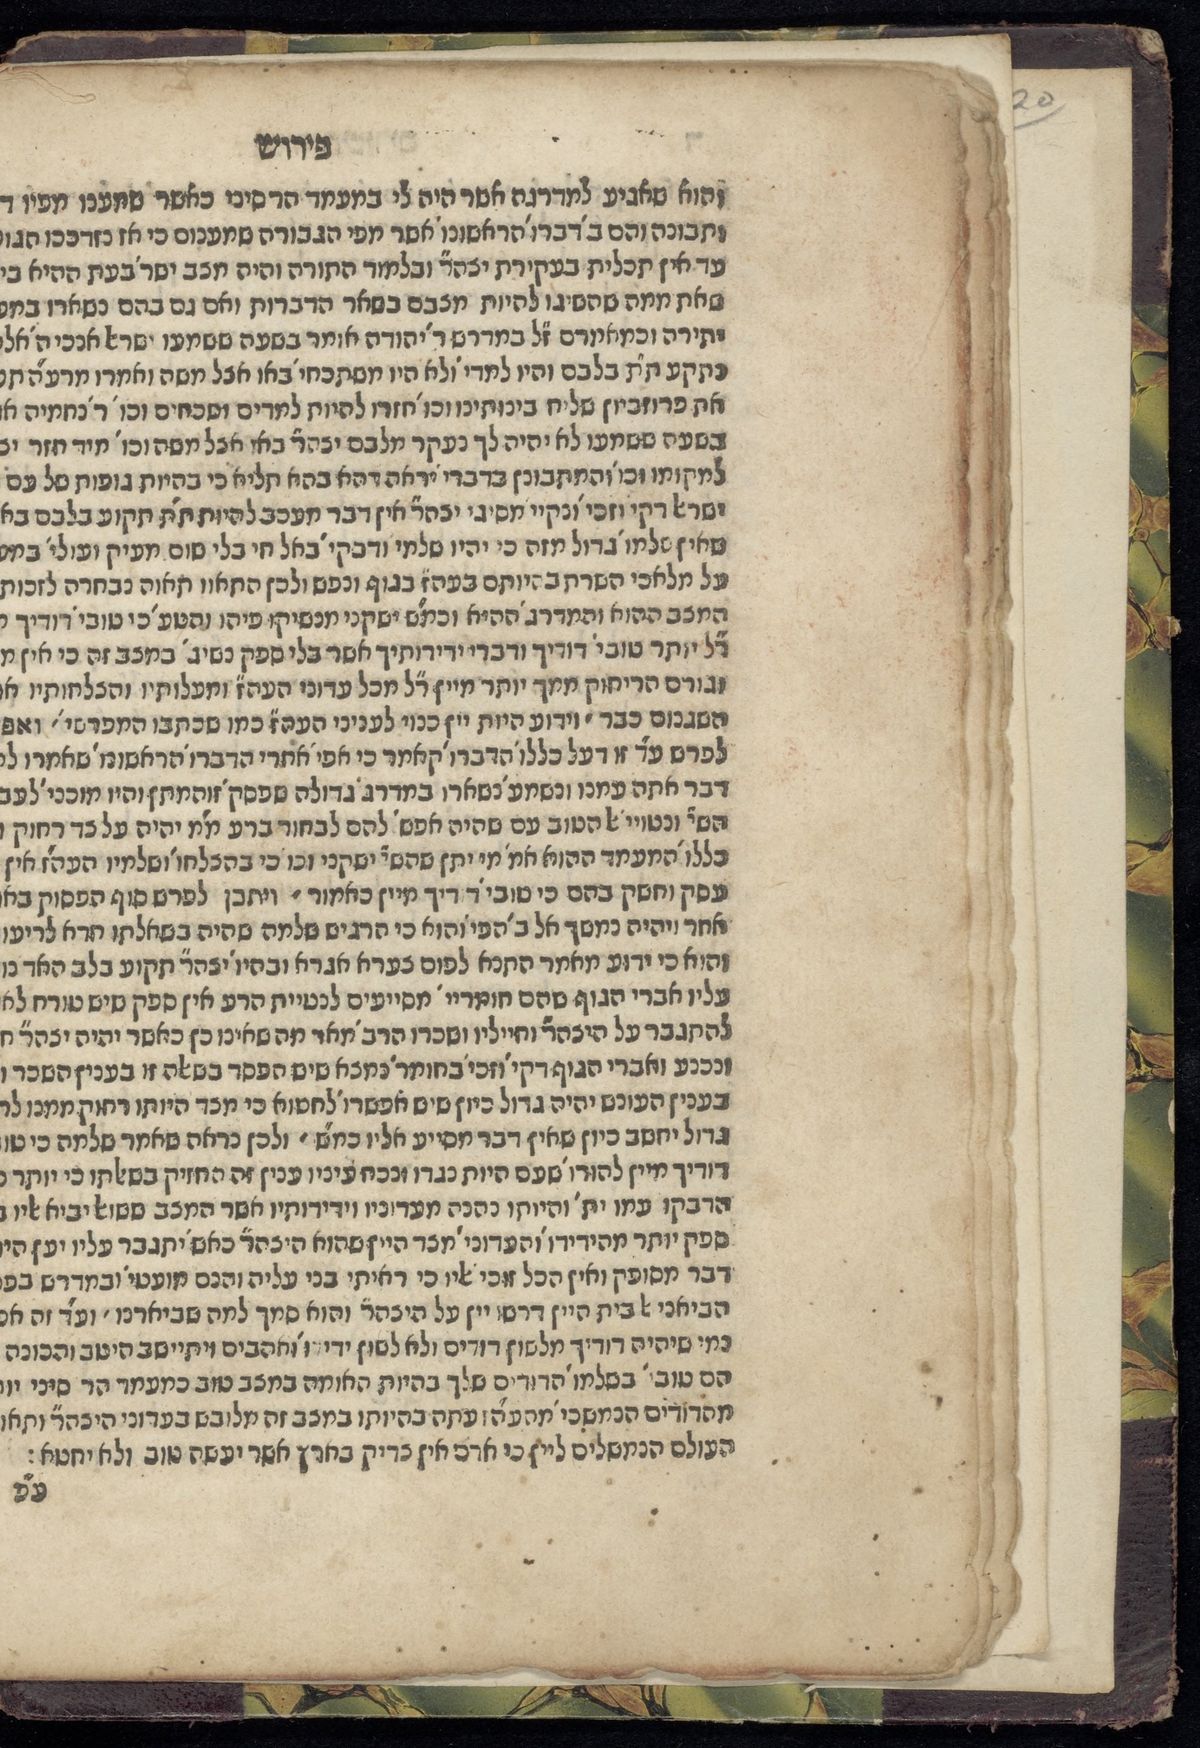 20
פירוש
והוא שאגיע למדרגה אשר היה לי במעמד הר סיני כאשר שמענו מפיו
ותבונה והם ב'דברו'הראשונו'אשר מפי הגבורה שמענום כי אז נזדככו
עד אין תכלית בעקירת יצה"ר ובלמוד התורה והיה מצב ישר'בעת ההיא
שאת ממה שהשיגו להיות מצבם בשאר הדברות ואם גם בהם נשארו
יתירה וכמאמרם ז"ל במדרש ר'יהודה אומר בשעה ששמעו ישראל אנכי ה'
נתקע ת"ת בלבם והיו למדי'ולא היו משתכחי'באו אצל משה ואמרו מרע"ה
את פרוזביון שליח בינותינו וכו'חזרו להיות למדים ושכחים וכו' ר'נחמיה
בשעה ששמעו לא יהיה לך נעקר מלבם יצה"ר באו אצל משה וכו' מיד חזר
למקומו וכו'והמתבונן בדברי'יראה דהא בהא תליא כי בהיות גופות של עם
ישראל דקי'וזכי'ונקיי'מסיגי יצה"ר אין דבר מעכב להיות ת"ת תקוע בלבם
שאין שלמו'גדול מזה כי יהיו שלמי'ודבקי'באל חי בלי שום מעיק ועולי'
על מלאכי השרת בהיותם בעה"ז בגוף ונפש ולכן התאוו תאוה נבחרה לזכות
המצב ההוא והמדרג'ההיא וכמ"ש ישקני מנשיקו' פיהו והטע'כי טובי'דודיך
ר"ל יותר טובי'דודיך ודברי ידידותיך אשר בלי ספק נשיג' במצב זה כי אין
וגורם הריחוק ממך יותר מיין ר"ל מכל עדוני העה"ז ומעלותיו והצלחותיו
השגנום כבר, וידוע היות יין כנוי לעניני העה"ז כמו שכתבו המפרשי',
לפרש ע"ד זו דעל כללו'הדברו'קאמר כי אפי'אחרי הדברו'הראשונו'שאמרו
דבר אתה עמנו ונשמע'נשארו במדרג'גדולה שפסק'זוהמתן והיו מוכני'
הש"י ונטויי'אל הטוב עם שהיה אפש' להם לבחור ברע מ"מ יהיה על צד רחוק
כללו'המעמד ההוא אמ'מי יתן שהש"י ישקני וכו'כי בהצלחו'ושלמיו העה"ז אין
עסק וחשק בהם כי טובי'דודיך מיין כאמור, ויתכן לפרש סוף הפסוק
אחר ויהיה נמשך אל ב'הפי'והוא כי הרגיש שלמה שהיה בשאלתו חדא לריעו
והוא כי ידוע מאמר התנא לפום צערא אגרא ובהיו'יצה"ר תקוע בלב האד'
עליו אברי הגוף שהם חומריי' מסייעים לנטיית הרע אין ספק שיש טורח
להתגבר על היצה"ר וחייליו ושכרו הרב'מאד מה שאינו כן כאשר יהיה יצה"ר
ונכנע ואברי הגוף דקי'וזכי'בחומר'נמצא שיש הפסד בשאלה זו בענין השכר
בענין העונש יהיה גדול כיון שיש אפשרו'לחטוא כי מצד היותו רחוק ממנו
גדול יחשב כיון שאין דבר מסייע אליו כמ"ש, ולכן נראה שאמר שלמה כי
דודיך מיין להורו'שעם היות כנגדו ונכח עיניו ענין זה החזיק בשאלתו כי יותר
הדבקו' עמו ית' והיותו נהנה מעדוניו וידידותיו אשר המצב ששואל יביא אליו
ספק יותר מהידידו'והעדוני'מצד היין שהוא היצה"ר כאש'יתגבר עליו יען
דבר מסופק ואין הכל זוכי'אליו כי ראיתי בני עליה והנם מועטי'ובמדרש
הביאני אל בית היין דרשו יין על היצה"ר והוא סמך למה שביארנו, וע"ד זה
נמי שיהיה דודיך מלשון דודים ולא לשון ידידו'ואהבים ויתיישב היטב והכונה
הם טובי' בשלמו'הדודים שלך בהיות האומה במצב טוב כמעמד הר סיני
מהדודים הנמשכי'מהע"ה עתה בהיותו במצב זה מלובש בעדוני היצה"ר
העולם הנמשלים ליין כי אדם אין צדיק בארץ אשר יעשה טוב ולא יחטא:
ע"פ